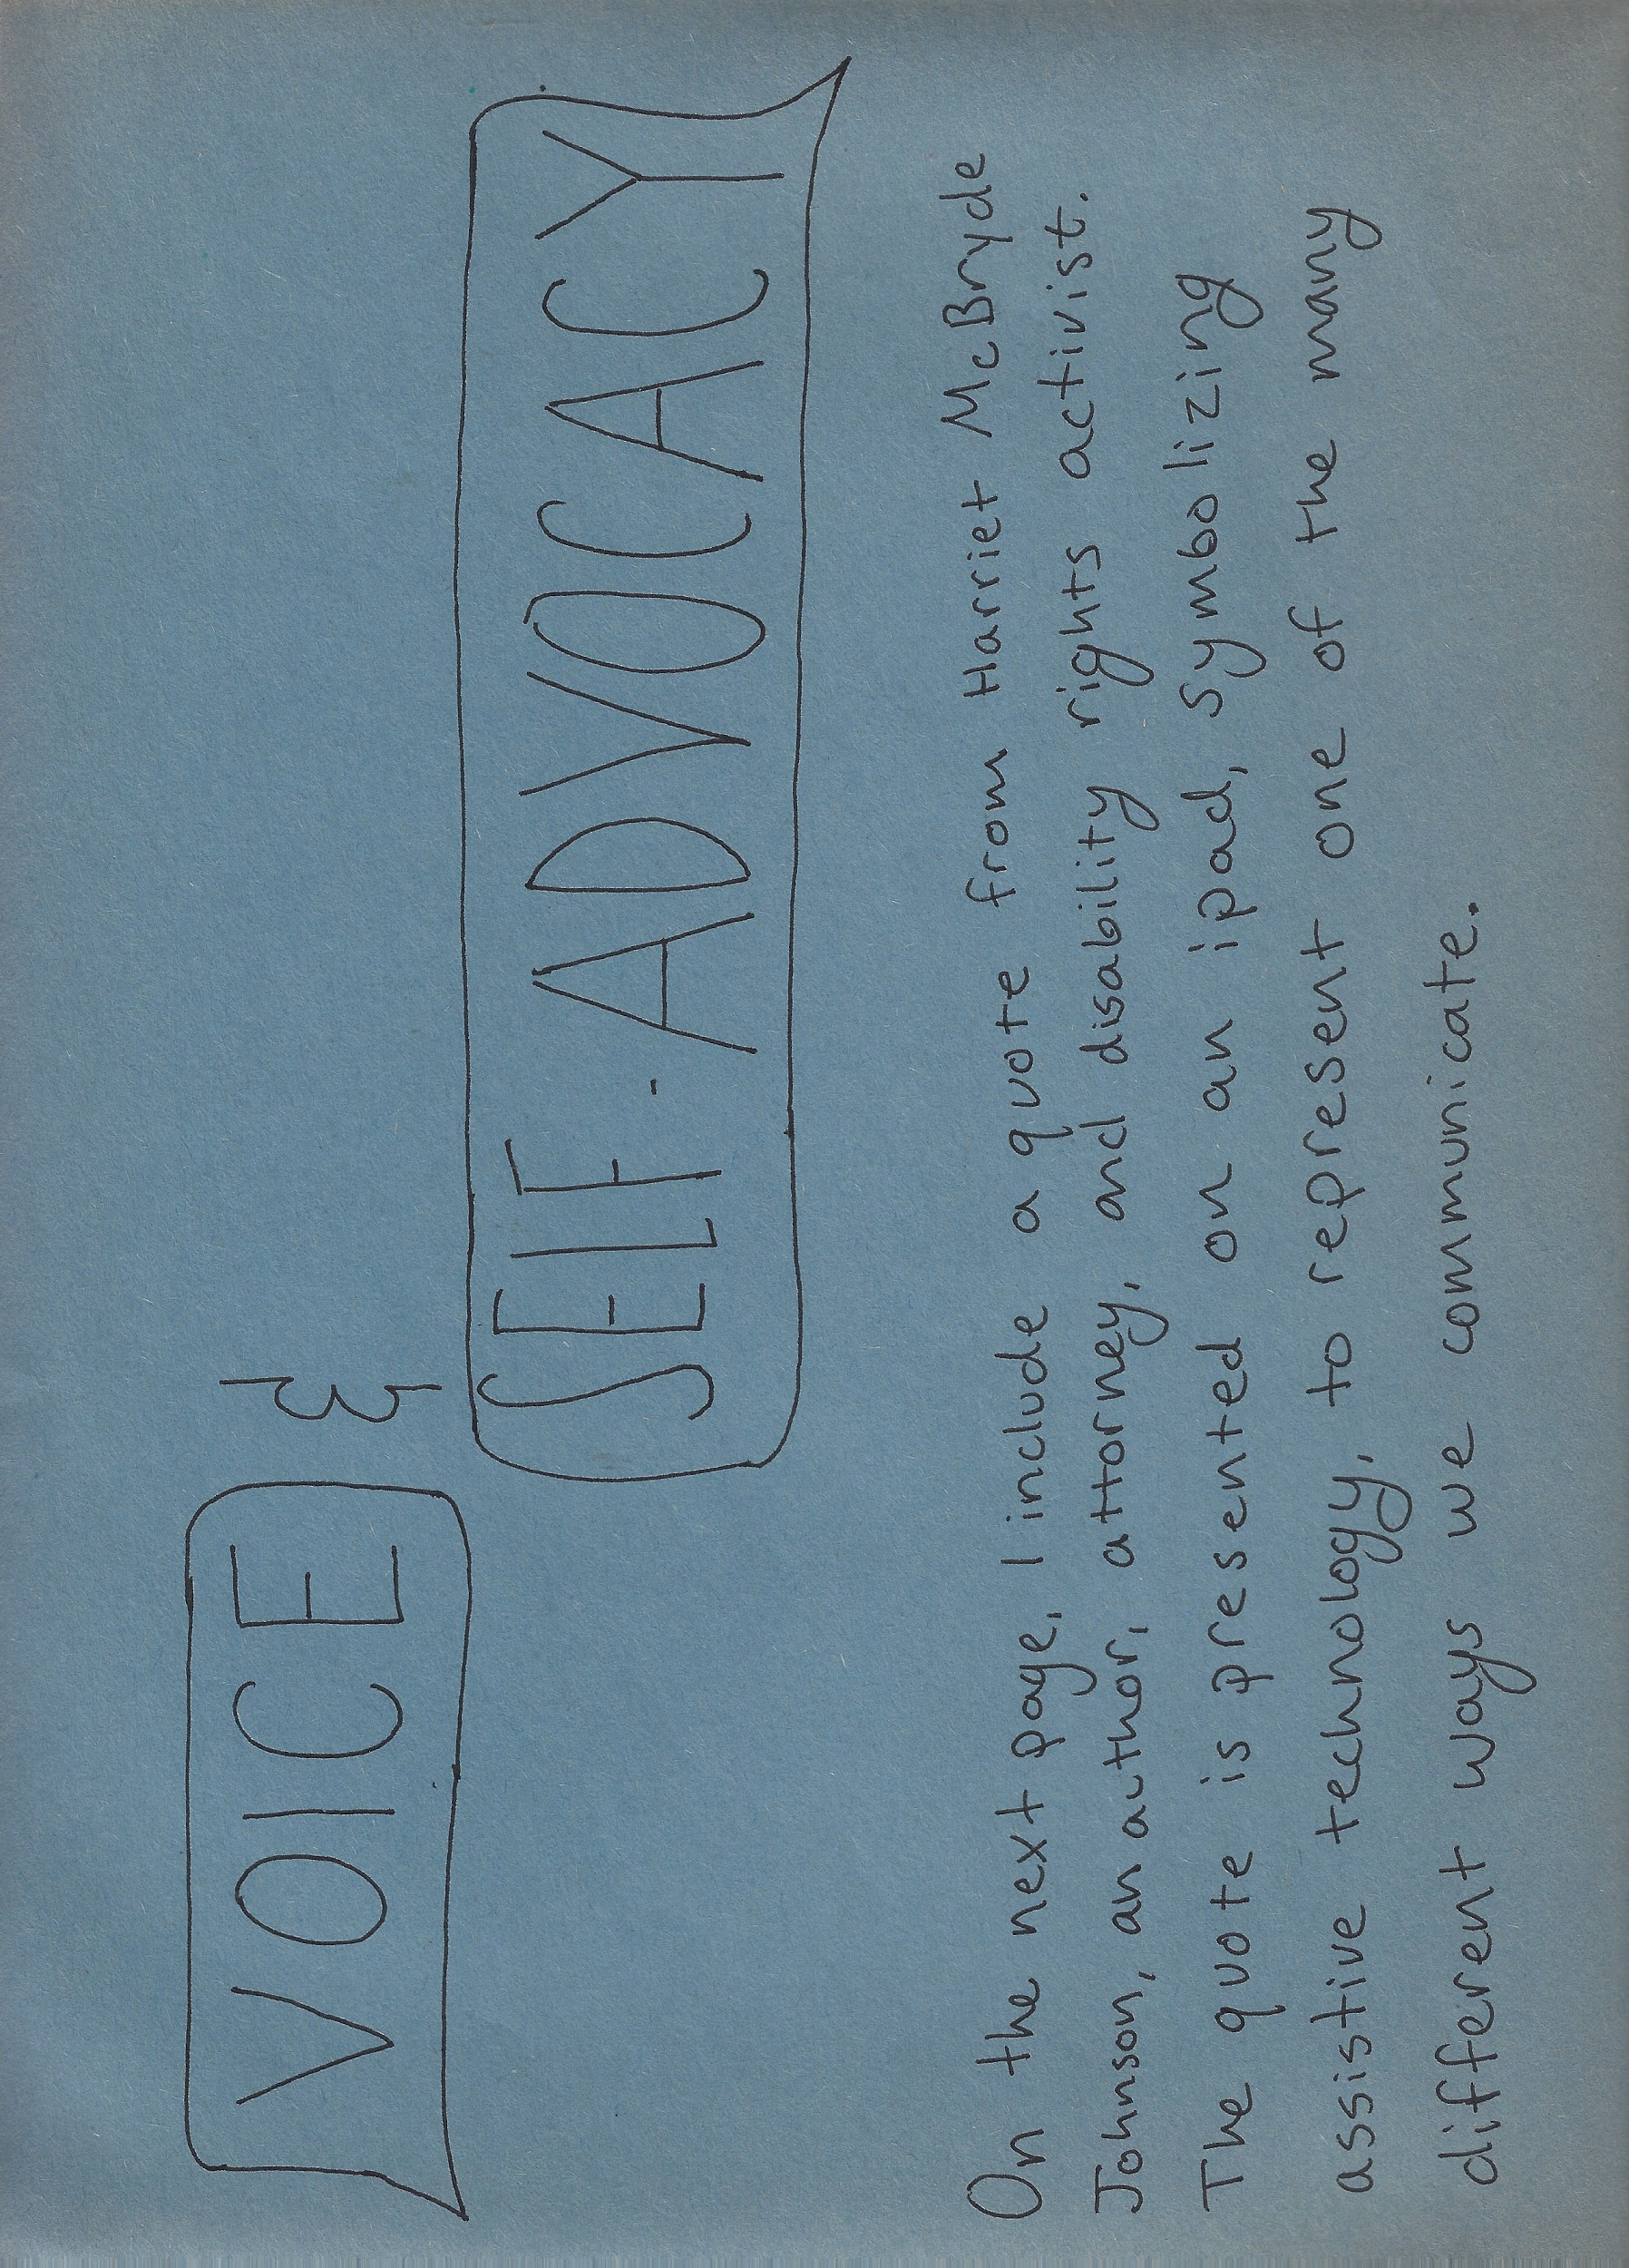 VOICE &
SELF-ADVOCACY
On the next page, I include a quote from Harriet McBryde
Johnson, an author, attorney, and disability rights activist.
The quote is presented on an ipad, symbolizing
assistive technology, to represent one of the many
different ways we communicate.